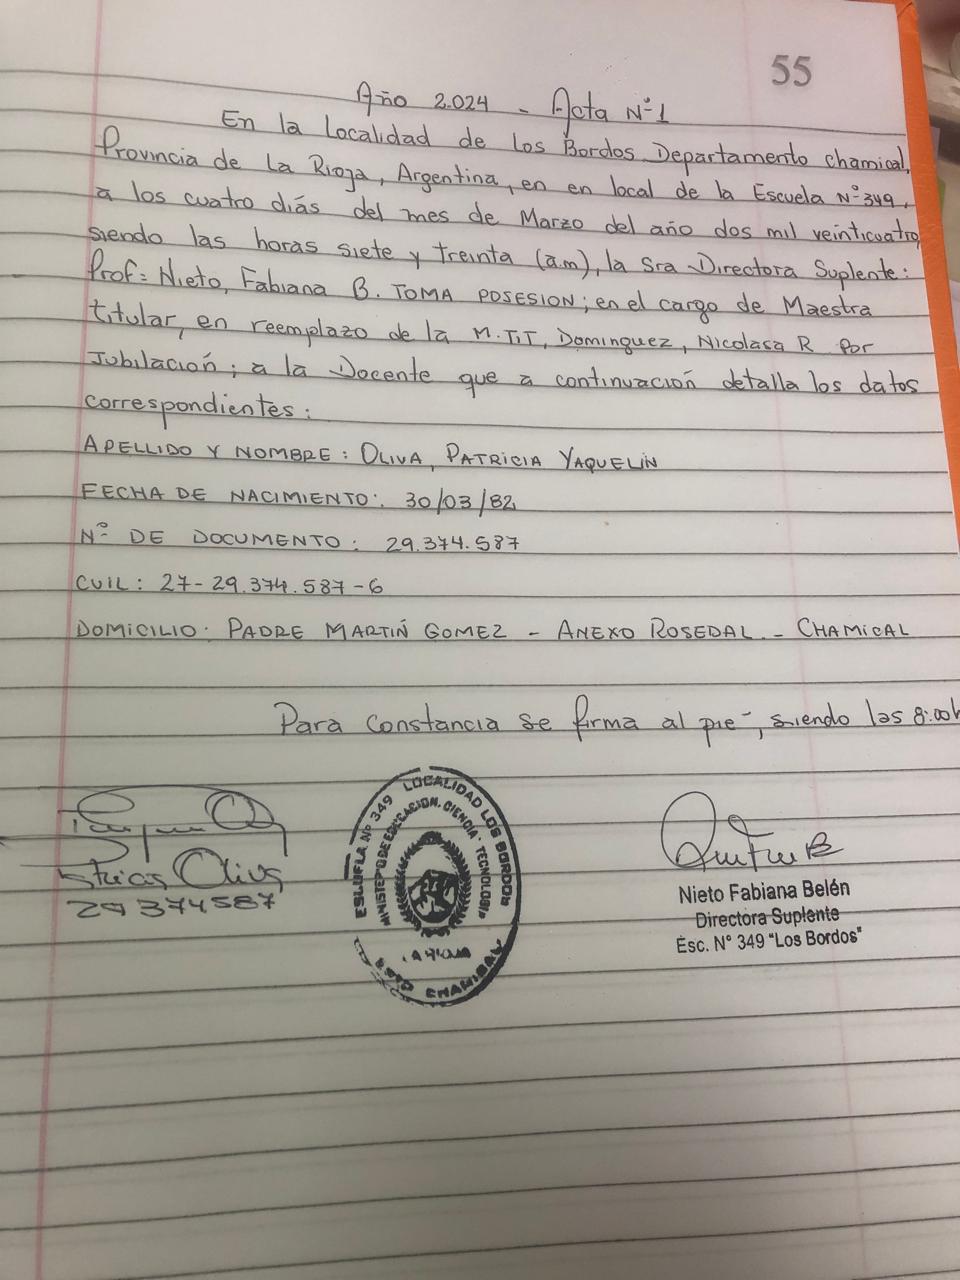 55
Año 2.024 - Acta N°1
En la Localidad de Los Bordos Departamento Chamical,
Provincia de La Rioja, Argentina, en en local de la Escuela N°349,
a los cuatro días del mes de Marzo del año dos mil veinticuatro,
siendo las horas siete y treinta (a.m), la Sra Directora Suplente:
Prof: Nieto, Fabiana B. TOMA POSESION; en el cargo de Maestra
titular, en reemplazo de la M.TIT, Dominguez, Nicolasa R por
Jubilación; a la Docente que a continuación detalla los datos
correspondientes:
APELLIDO Y NOMBRE: OLIVA, PATRICIA YAQUELIN
FECHA DE NACIMIENTO: 30/03/82
N° DE DOCUMENTO: 29.374.587
CUIL: 27-29.374.587-6
DOMICILIO: PADRE MARTIÑ GOMEZ - ANEXO ROSEDAL - CHAMICAL
Para Constancia se firma al pié, siendo las 8:00h
Oliva
29374587
ESCUELA Nº 349 LOCALIDAD LOS BORDOS
MINISTERIO DE EDUCACION, CIENCIA Y TECNOLOGIA
LA RIOJA
DPTO CHAMICAL
Nieto Fabiana Belén
Directora Suplente
Esc. N° 349 "Los Bordos"